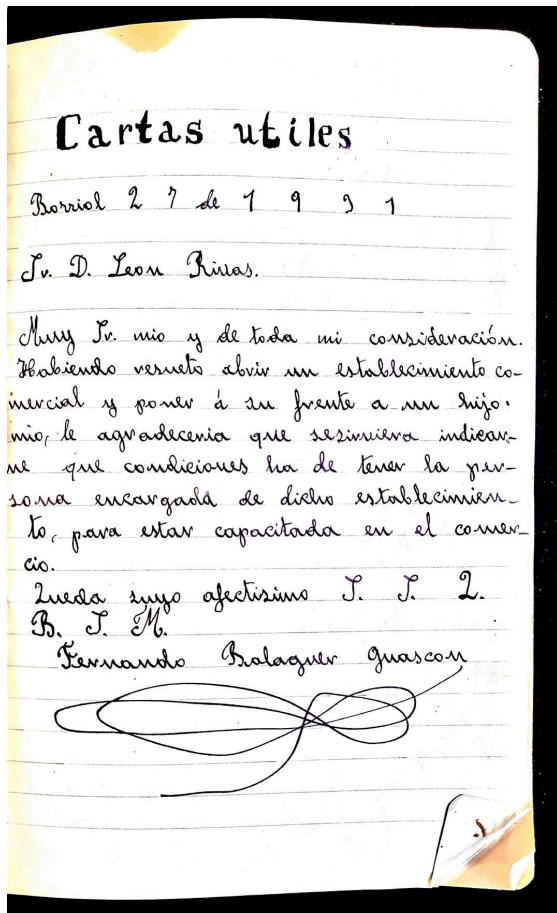 Cartas utiles
Borriol 27 de 1931
Sr. D. Leon Rivas.
Muy Sr. mio y de toda mi consideración.
Habiendo resueto abrir un establecimiento co-
mercial y poner á su frente a un hijo
mio, le agradeceria que sesirviera indicar-
me que condiciones ha de tener la per-
sona encargada de dicho establecimien-
to, para estar capacitada en el comer-
cio.
Queda suyo afectisimo S. S. Q.
B. S. M.
Fernando Balaguer Guascon